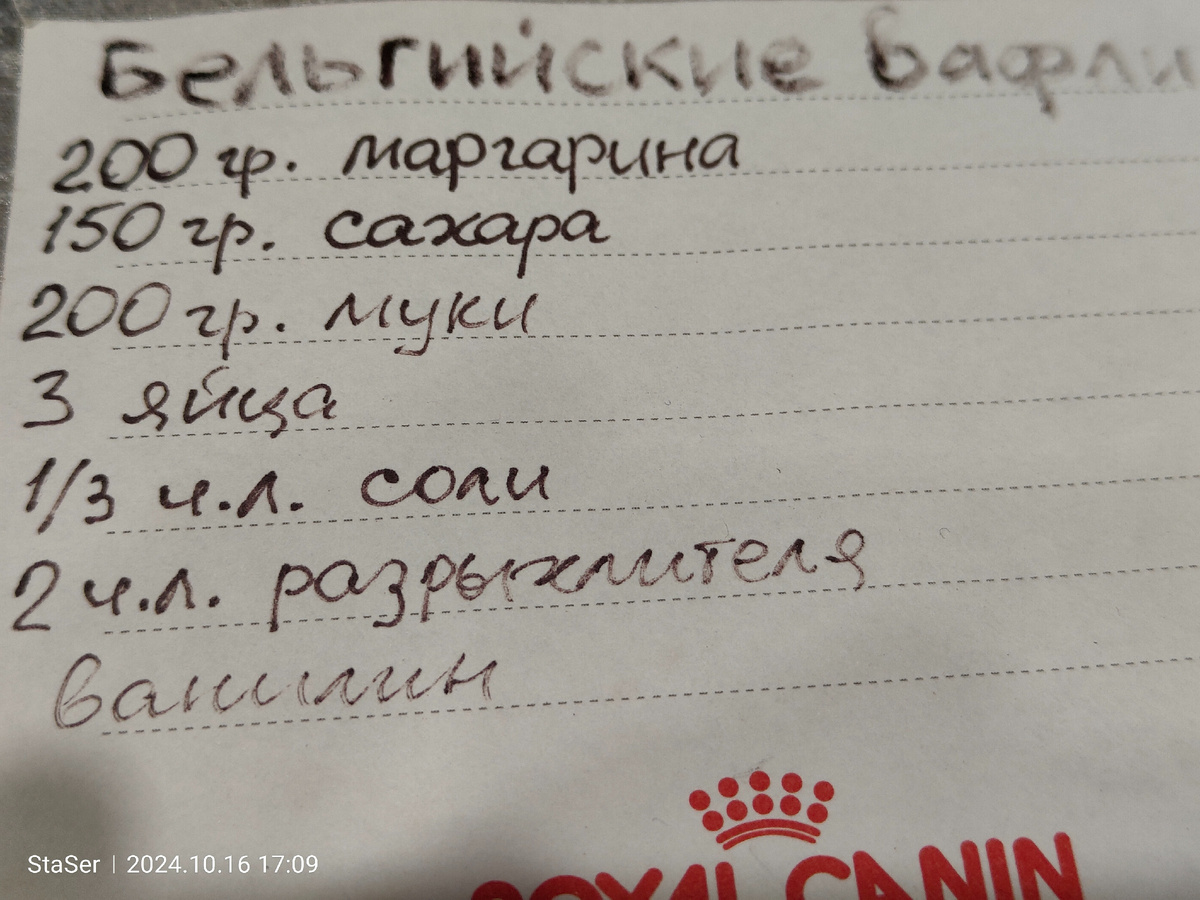 Бельгийские вафли
200 гр. маргарина
150 гр. сахара
200 гр. муки
3 яйца
1/3 ч.л. соли
2 ч.л. разрыхлителя
ванилин
ROYAL CANIN
StaSer | 2024.10.16 17:09